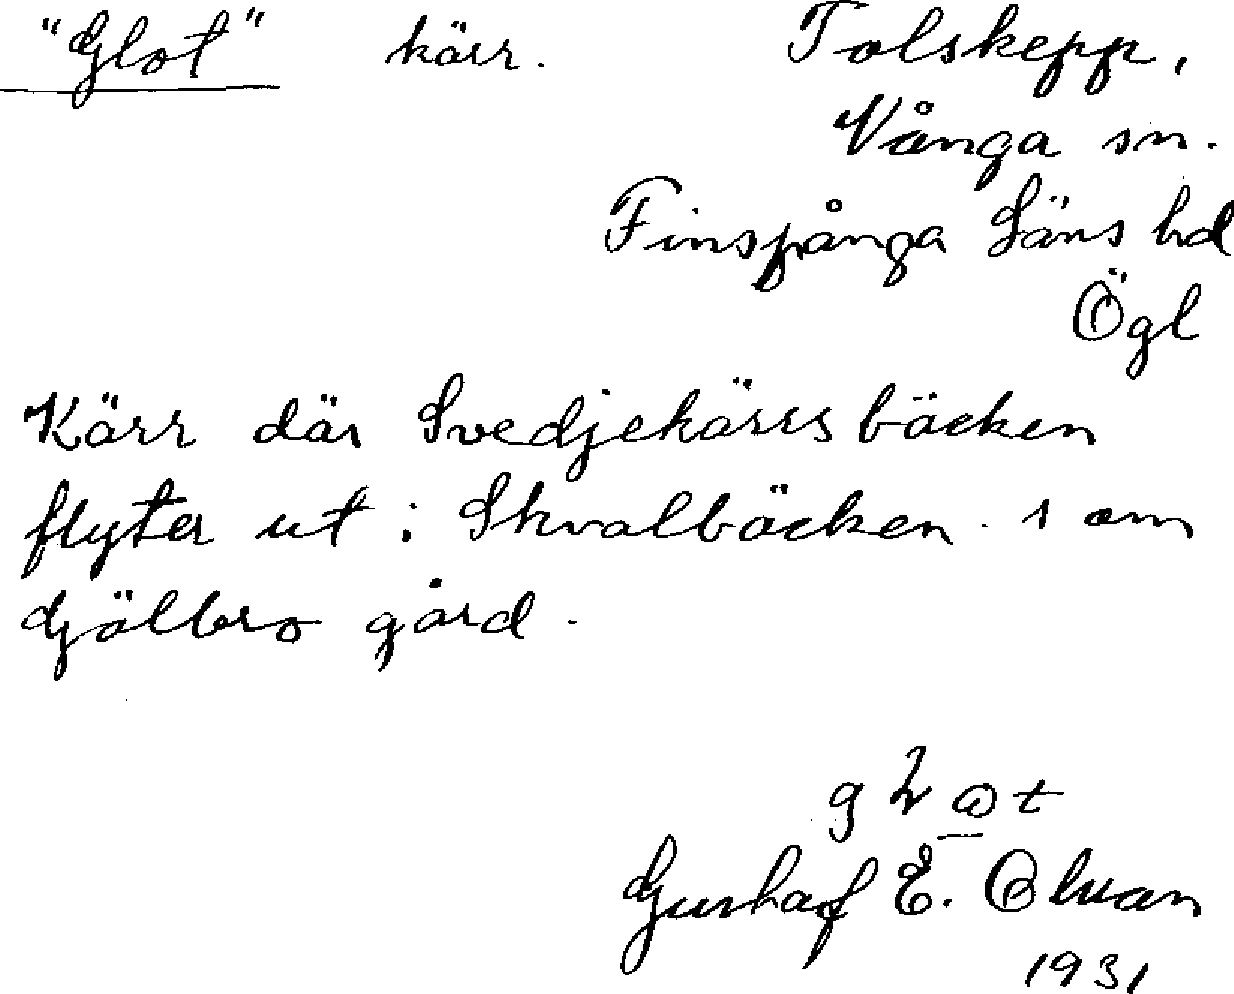 "Glot" kärr. Tolskepp,
Vånga sn.
Finspånga Läns hd
Ögl
Kärr där Svedjekärrsbäcken
flyter ut i Skvalbäcken. s om
Gjälbro gård.
Gustaf E.
1931